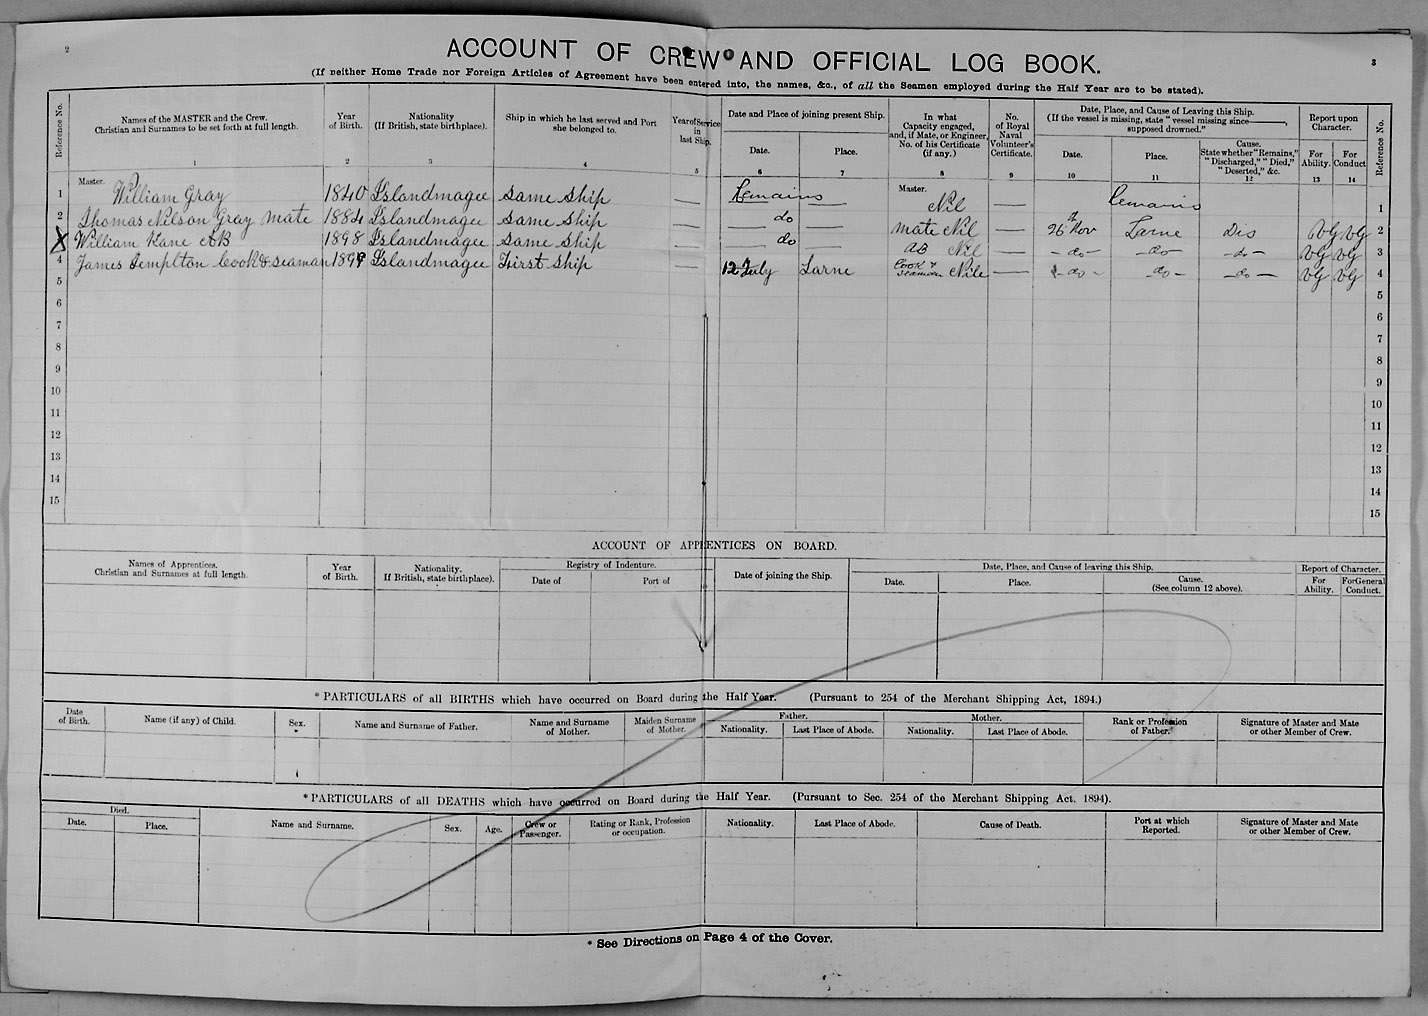 2
3
ACCOUNT OF CREW AND OFFICIAL LOG BOOK.
(If neither Home Trade nor Foreign Articles of Agreement have been entered into, the names, &c., of all the Seamen employed during the Half Year are to be stated).
Reference No.
Names of the MASTER and the Crew.
Christian and Surnames to be set forth at full length.
1
Year
of Birth.
2
Nationality
(If British, state birthplace).
3
Ship in which he last served and Port
she belonged to.
4
Year of Service
in
last Ship.
5
Date and Place of joining present Ship.
Date.
6
Place.
7
In what
Capacity engaged,
and, if Mate, or Engineer,
No. of his Certificate
(if any.)
8
No.
of Royal
Naval
Volunteer's
Certificate.
9
Date, Place, and Cause of Leaving this Ship.
(If the vessel is missing, state "vessel missing since———,
supposed drowned."
Date.
10
Place.
11
Cause.
State whether "Remains,"
"Discharged," "Died,"
"Deserted," &c.
12
Report upon
Character.
For
Ability.
13
For
Conduct
14
Reference No.
1 Master. William Gray 1840 Islandmagee Same Ship — Remains Master. Nil — Remains 1
2 Thomas Nilson Gray Mate 1884 Islandmagee Same Ship — — do — Mate Nil — 26th Nov Larne Dis VG VG 2
X William Kane AB 1898 Islandmagee Same Ship — — do — AB Nil — - do - - do - - do - VG VG 3
4 James Templton Cook & Seaman 1899 Islandmagee First Ship — 12 July Larne Cook & Seaman Nile — - do - - do - - do - VG VG 4
5 5
6 6
7 7
8 8
9 9
10 10
11 11
12 12
13 13
14 14
15 15
ACCOUNT OF APPRENTICES ON BOARD.
Names of Apprentices.
Christian and Surnames at full length.
Year
of Birth.
Nationality.
If British, state birthplace).
Registry of Indenture.
Date of
Port of
Date of joining the Ship.
Date, Place, and Cause of leaving this Ship.
Date.
Place.
Cause.
(See column 12 above).
Report of Character.
For
Ability.
For General
Conduct.
* PARTICULARS of all BIRTHS which have occurred on Board during the Half Year. (Pursuant to 254 of the Merchant Shipping Act, 1894.)
Date
of Birth.
Name (if any) of Child.
Sex.
Name and Surname of Father.
Name and Surname
of Mother.
Maiden Surname
of Mother.
Father.
Nationality.
Last Place of Abode.
Mother.
Nationality.
Last Place of Abode.
Rank or Profession
of Father.
Signature of Master and Mate
or other Member of Crew.
* PARTICULARS of all DEATHS which have occurred on Board during the Half Year. (Pursuant to Sec. 254 of the Merchant Shipping Act, 1894).
Died.
Date.
Place.
Name and Surname.
Sex.
Age.
Crew or
Passenger.
Rating or Rank, Profession
or occupation.
Nationality.
Last Place of Abode.
Cause of Death.
Port at which
Reported.
Signature of Master and Mate
or other Member of Crew.
* See Directions on Page 4 of the Cover.